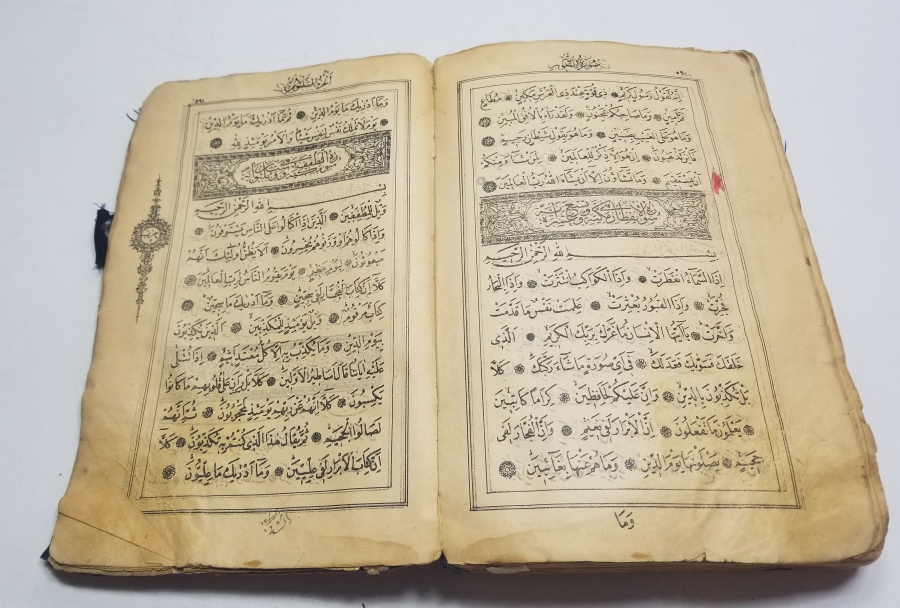 سُورَةُ التَّكْوِيرِ
اِنَّهُ لَقَوْلُ رَسُولٍ كَرِيمٍ ذِى قُوَّةٍ عِنْدَ ذِى الْعَرْشِ مَكِينٍ مُطَاعٍ
ثَمَّ اَمِينٍ وَمَا صَاحِبُكُمْ بِمَجْنُونٍ وَلَقَدْ رَاٰهُ بِالْاُفُقِ الْمُبِينِ
وَمَا هُوَ عَلَى الْغَيْبِ بِضَنِينٍ وَمَا هُوَ بِقَوْلِ شَيْطَانٍ رَجِيمٍ
فَاَيْنَ تَذْهَبُونَ اِنْ هُوَ اِلَّا ذِكْرٌ لِلْعَالَمِينَ لِمَنْ شَاءَ مِنْكُمْ
اَنْ يَسْتَقِيمَ وَمَا تَشَاؤُنَ اِلَّا اَنْ يَشَاءَ اللهُ رَبُّ الْعَالَمِينَ
سورة الانفطار مكية وهى تسع عشرة آية
بِسْمِ اللهِ الرَّحْمٰنِ الرَّحِيمِ
اِذَا السَّمَاءُ انْفَطَرَتْ وَاِذَا الْكَوَاكِبُ انْتَثَرَتْ وَاِذَا الْبِحَارُ
فُجِّرَتْ وَاِذَا الْقُبُورُ بُعْثِرَتْ عَلِمَتْ نَفْسٌ مَا قَدَّمَتْ
وَاَخَّرَتْ يَا اَيُّهَا الْاِنْسَانُ مَا غَرَّكَ بِرَبِّكَ الْكَرِيمِ اَلَّذِى
خَلَقَكَ فَسَوّٰيكَ فَعَدَلَكَ فِى اَىِّ صُورَةٍ مَا شَاءَ رَكَّبَكَ كَلَّا
بَلْ تُكَذِّبُونَ بِالدِّينِ وَاِنَّ عَلَيْكُمْ لَحَافِظِينَ كِرَامًا كَاتِبِينَ
يَعْلَمُونَ مَا تَفْعَلُونَ اِنَّ الْاَبْرَارَ لَفِى نَعِيمٍ وَاِنَّ الْفُجَّارَ لَفِى
جَحِيمٍ يَصْلَوْنَهَا يَوْمَ الدِّينِ وَمَا هُمْ عَنْهَا بِغَائِبِينَ
وَمَا
وَمَا اَدْرٰيكَ مَا يَوْمُ الدِّينِ ثُمَّ مَا اَدْرٰيكَ مَا يَوْمُ الدِّينِ
يَوْمَ لَا تَمْلِكُ نَفْسٌ لِنَفْسٍ شَيْئًا وَالْاَمْرُ يَوْمَئِذٍ لِلهِ
بِسْمِ اللهِ الرَّحْمٰنِ الرَّحِيمِ
وَيْلٌ لِلْمُطَفِّفِينَ اَلَّذِينَ اِذَا اكْتَالُوا عَلَى النَّاسِ يَسْتَوْفُونَ
وَاِذَا كَالُوهُمْ اَوْ وَزَنُوهُمْ يُخْسِرُونَ اَلَا يَظُنُّ اُولٰئِكَ اَنَّهُمْ
مَبْعُوثُونَ لِيَوْمٍ عَظِيمٍ يَوْمَ يَقُومُ النَّاسُ لِرَبِّ الْعَالَمِينَ
كَلَّا اِنَّ كِتَابَ الْفُجَّارِ لَفِى سِجِّينٍ وَمَا اَدْرٰيكَ مَا سِجِّينٌ
كِتَابٌ مَرْقُومٌ وَيْلٌ يَوْمَئِذٍ لِلْمُكَذِّبِينَ اَلَّذِينَ يُكَذِّبُونَ
بِيَوْمِ الدِّينِ وَمَا يُكَذِّبُ بِهِ اِلَّا كُلُّ مُعْتَدٍ اَثِيمٍ اِذَا تُتْلٰى
عَلَيْهِ اٰيَاتُنَا قَالَ اَسَاطِيرُ الْاَوَّلِينَ كَلَّا بَلْ رَانَ عَلٰى قُلُوبِهِمْ مَا كَانُوا
يَكْسِبُونَ كَلَّا اِنَّهُمْ عَنْ رَبِّهِمْ يَوْمَئِذٍ لَمَحْجُوبُونَ ثُمَّ اِنَّهُمْ
لَصَالُوا الْجَحِيمِ ثُمَّ يُقَالُ هٰذَا الَّذِى كُنْتُمْ بِهِ تُكَذِّبُونَ كَلَّا
اِنَّ كِتَابَ الْاَبْرَارِ لَفِى عِلِّيِّينَ وَمَا اَدْرٰيكَ مَا عِلِّيُّونَ